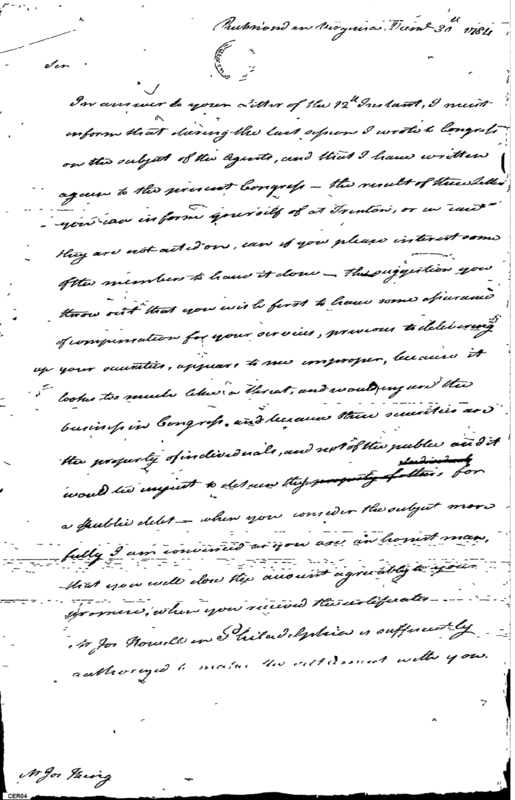 Richmond in Virginia Decemr 30th 1784
Sir
In answer to your Letter of the 12th Instant, I must
inform that during the last session I wrote to Congress
on the subject of the Agents, and that I have written
again to the present Congress — the result of these Letters
you can inform yourself of at Trenton, or in case
they are not acted on, can if you please interest some
of the members to have it done — the suggestion you
throw out that you wish first to have some assurance
of compensation for your services, previous to delivering
up your securities, appears to me improper, because it
looks too much like a threat, and would injure the
business in Congress, and because these securities are
the property of individuals, and not of the public and it
would be unjust to detain the property of others, for
a public debt — when you consider the subject more
fully I am convinced as you are an honest man,
that you will close the account agreeably to your
promise, when you received the certificates
Mr Jos Howell in Philadelphia is sufficiently
authorized to make the settlement with you.
Mr Jos King
CER04